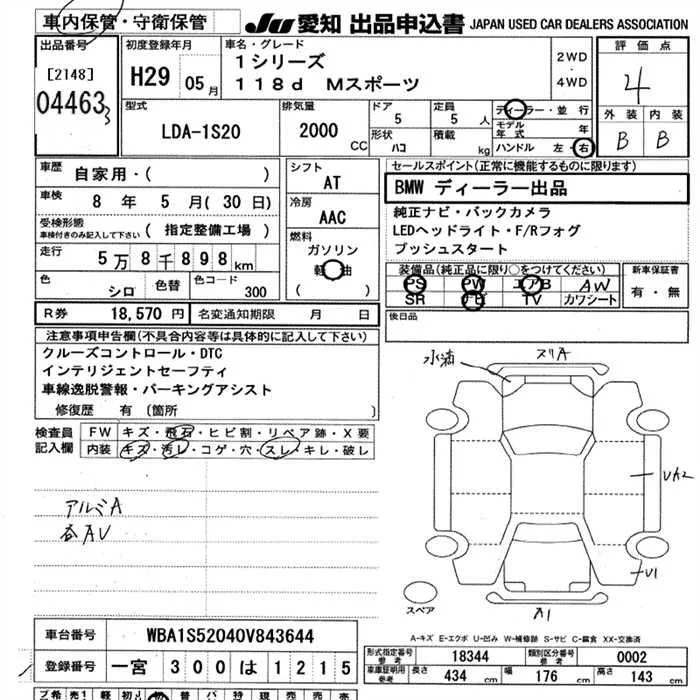 車内保管・守衛保管
JU 愛知 出品申込書 JAPAN USED CAR DEALERS ASSOCIATION
出品番号
[2148]
04463
3
初度登録年月
H29 05月
車名・グレード
1シリーズ
118d Mスポーツ
2WD
・
4WD
評価点
4
外装 内装
B B
型式
LDA-1S20
排気量
2000 CC
ドア
5
形状
ハコ
定員
5 人
積載
kg
ディーラー・並行
モデル年式 年
ハンドル 左・右
車歴
自家用・( )
車検
8 年 5 月(30 日)
受検形態
車検付きのみ記入して下さい ( 指定整備工場 )
走行
5万8千898km
色
シロ
色替
色コード
300
シフト
AT
冷房
AAC
燃料
ガソリン
軽油
( )
セールスポイント(正常に機能するものに限ります)
BMW ディーラー出品
純正ナビ・バックカメラ
LEDヘッドライト・F/Rフォグ
プッシュスタート
装備品(純正品に限り○をつけてください)
PS PW エアB AW
SR ナビ TV カワシート
新車保証書
有・無
R券 18,570 円 名変通知期限 月 日
後日品
注意事項申告欄(不具合内容等は具体的に記入して下さい)
クルーズコントロール・DTC
インテリジェントセーフティ
車線逸脱警報・パーキングアシスト
修復歴 有 〔箇所 〕
検査員記入欄
FW キズ・飛石・ヒビ割・リペア跡・X要
内装 キズ・汚レ・コゲ・穴・スレ・キレ・破レ
アルミA
各AU
ズリA
UA2
U1
A1
スペア
A-キズ E-エクボ U-凹み W-補修跡 S-サビ C-腐食 XX-交換済
車台番号 WBA1S52040V843644
登録番号 一宮 300 は 1215
形式指定番号 参考 18344 類別区分番号 参考 0002
車庫証明用 参考 長さ 434 cm 幅 176 cm 高さ 143 cm